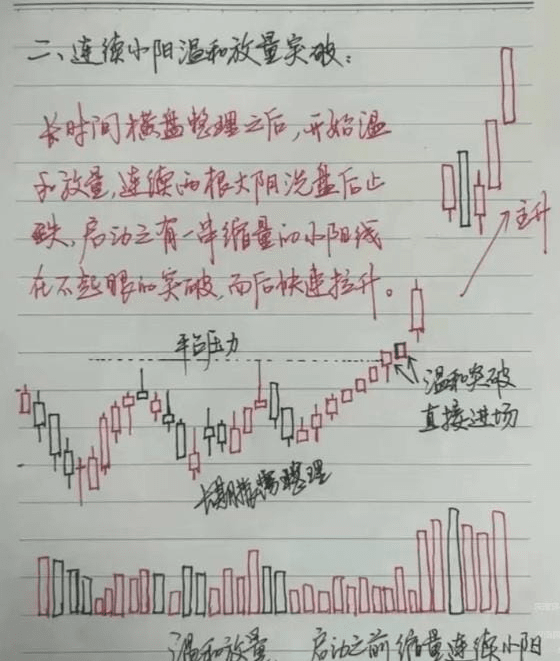 二、连续小阳温和放量突破：
长时间横盘整理之后，开始温
和放量，连续两根大阴洗盘后止
跌，启动之有一串缩量的小阳线
在不起眼的突破，而后快速拉升。
主升
平台压力
温和突破
直接进场
长期横盘整理
温和放量
启动之前缩量连续小阳